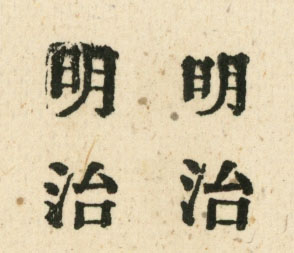 明治
明治